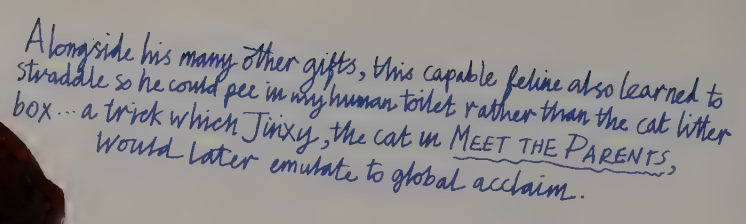 Alongside his many other gifts, this capable feline also learned to
straddle so he could pee in my human toilet rather than the cat litter
box... a trick which Jinxy, the cat in MEET THE PARENTS,
would later emulate to global acclaim.